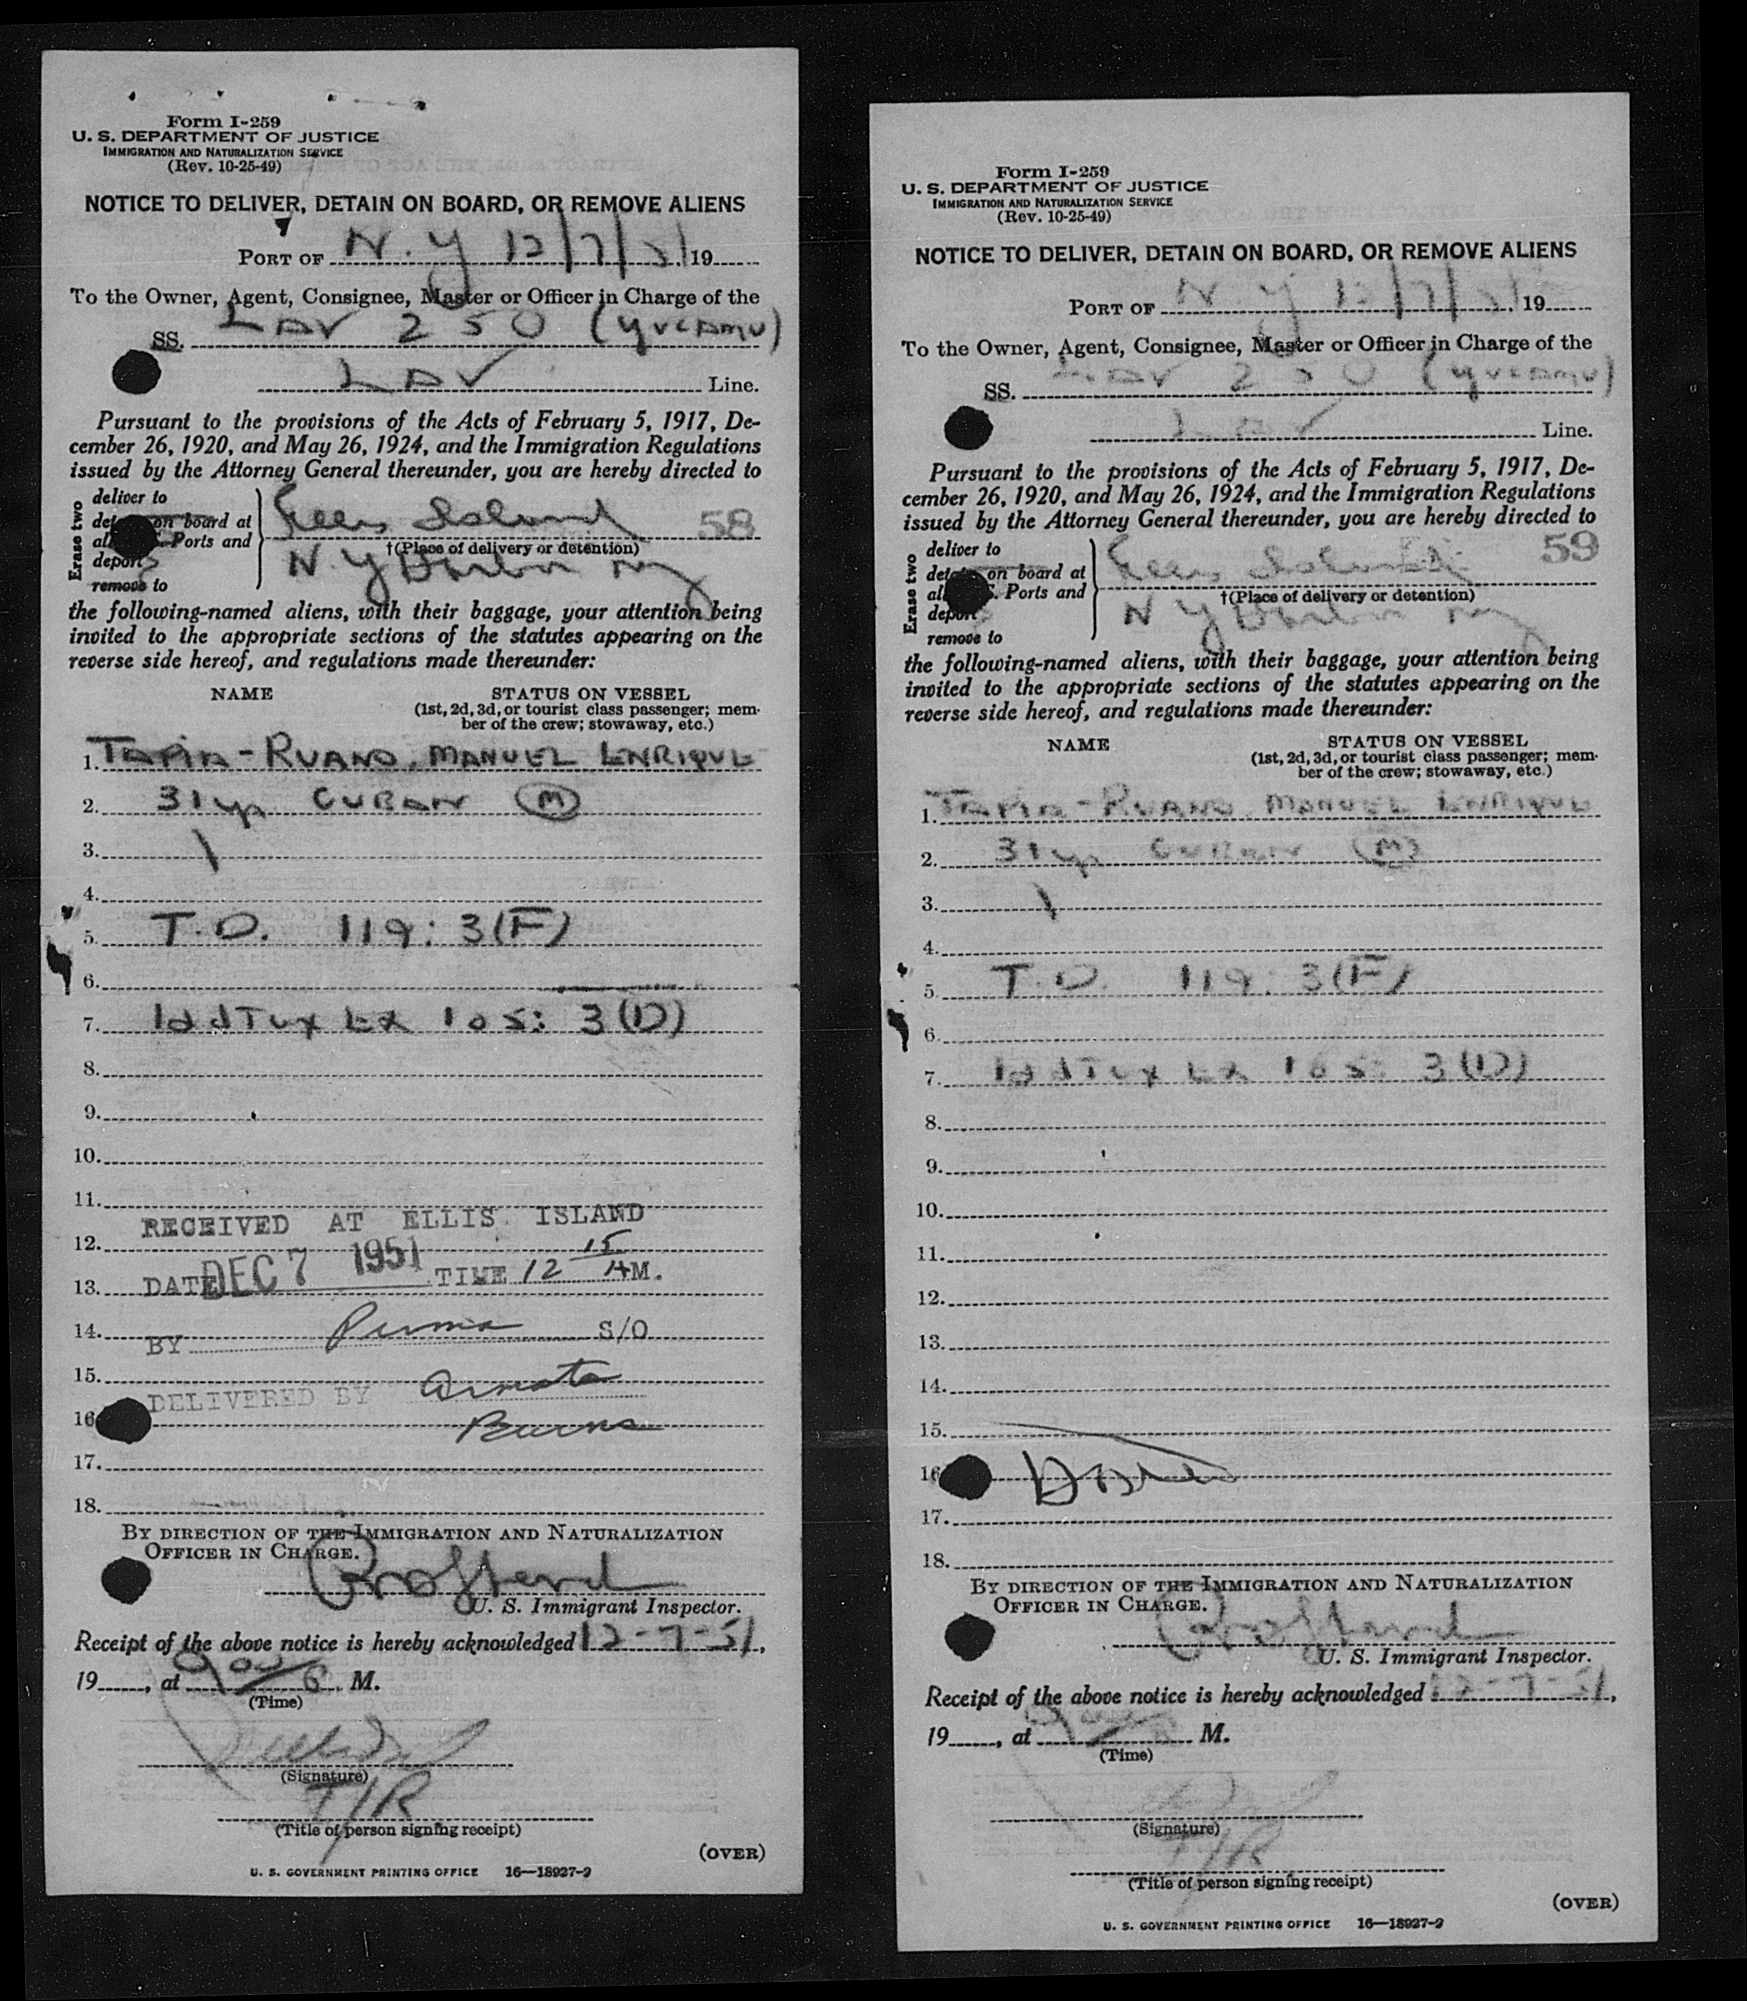 Form I-259
U. S. DEPARTMENT OF JUSTICE
IMMIGRATION AND NATURALIZATION SERVICE
(Rev. 10-25-49)
NOTICE TO DELIVER, DETAIN ON BOARD, OR REMOVE ALIENS
PORT OF N.Y 12/7/51 19
To the Owner, Agent, Consignee, Master or Officer in Charge of the
SS. LAV 250 (YVCAMU)
LAV Line.
Pursuant to the provisions of the Acts of February 5, 1917, De-
cember 26, 1920, and May 26, 1924, and the Immigration Regulations
issued by the Attorney General thereunder, you are hereby directed to
Erase two
deliver to
on board at
Ports and
deport
remove to
Ellis Island
58
†(Place of delivery or detention)
N.Y Harbor NY
the following-named aliens, with their baggage, your attention being
invited to the appropriate sections of the statutes appearing on the
reverse side hereof, and regulations made thereunder:
NAME STATUS ON VESSEL
(1st, 2d, 3d, or tourist class passenger; mem-
ber of the crew; stowaway, etc.)
1. TAPIA-RUANO, MANUEL ENRIQUE
2. 31 yr CUBAN (M)
3.
4.
5. T.D. 119: 3(F)
6.
7. EX 105: 3(D)
8.
9.
10.
11.
RECEIVED AT ELLIS ISLAND
12.
13. DATE DEC 7 1951 TIME 12 15 AM.
14.
BY S/O
15.
DELIVERED BY
16
Burns
17.
18.
BY DIRECTION OF THE IMMIGRATION AND NATURALIZATION
OFFICER IN CHARGE.
U. S. Immigrant Inspector.
Receipt of the above notice is hereby acknowledged 12-7-51,
19, at 900 M.
(Time)
(Signature)
T/R
(Title of person signing receipt)
(OVER)
U. S. GOVERNMENT PRINTING OFFICE 16—18927-2
Form I-259
U. S. DEPARTMENT OF JUSTICE
IMMIGRATION AND NATURALIZATION SERVICE
(Rev. 10-25-49)
NOTICE TO DELIVER, DETAIN ON BOARD, OR REMOVE ALIENS
PORT OF N Y 12/7/51, 19
To the Owner, Agent, Consignee, Master or Officer in Charge of the
SS. LAV 250 (YVCAMU)
LAV Line.
Pursuant to the provisions of the Acts of February 5, 1917, De-
cember 26, 1920, and May 26, 1924, and the Immigration Regulations
issued by the Attorney General thereunder, you are hereby directed to
Erase two
deliver to
on board at
Ports and
deport
remove to
Ellis Island
59
†(Place of delivery or detention)
N Y Harbor NY
the following-named aliens, with their baggage, your attention being
invited to the appropriate sections of the statutes appearing on the
reverse side hereof, and regulations made thereunder:
NAME STATUS ON VESSEL
(1st, 2d, 3d, or tourist class passenger; mem-
ber of the crew; stowaway, etc.)
1. TAPIA-RUANO, MANUEL ENRIQUE
2. 31 yr CUBAN (M)
3.
4.
5. T.D. 119: 3(F)
6.
7. EX 105: 3(D)
8.
9.
10.
11.
12.
13.
14.
15.
16
17.
18.
BY DIRECTION OF THE IMMIGRATION AND NATURALIZATION
OFFICER IN CHARGE.
U. S. Immigrant Inspector.
Receipt of the above notice is hereby acknowledged 12-7-51,
19, at 900 M.
(Time)
(Signature)
T/R
(Title of person signing receipt)
(OVER)
U. S. GOVERNMENT PRINTING OFFICE 16—18927-2